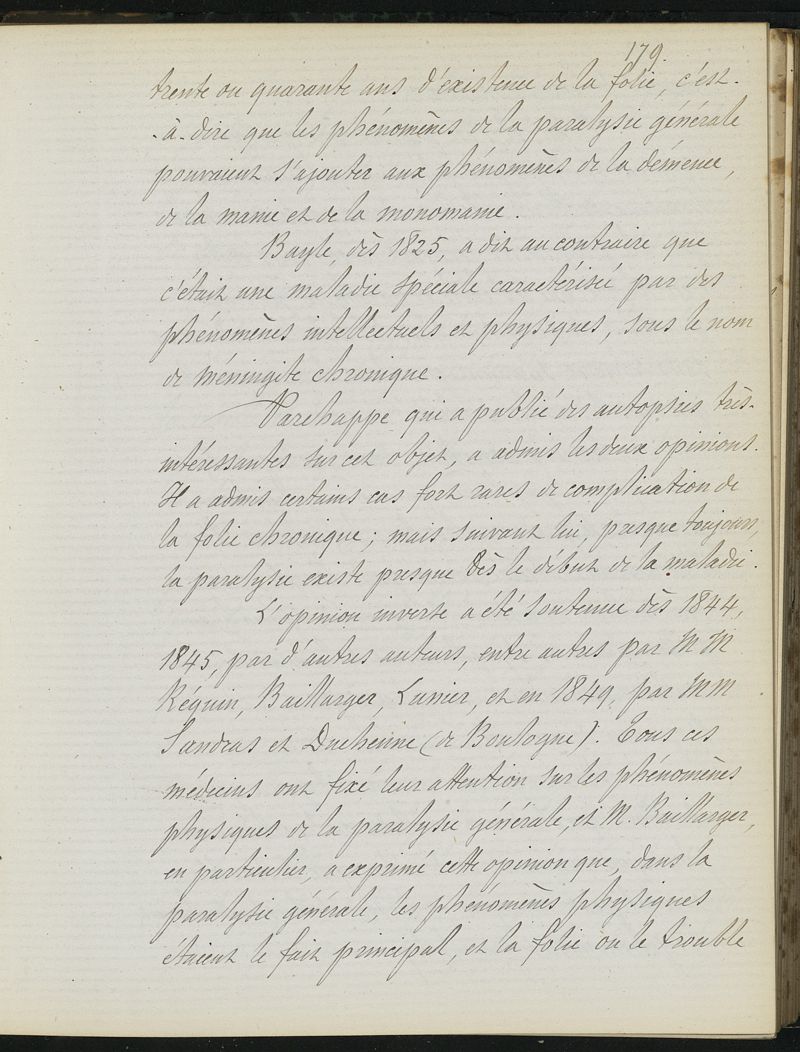 179.
trente ou quarante ans d'existence de la folie, c'est-
-à-dire que les phénomènes de la paralysie générale
pouvaient s'ajouter aux phénomènes de la démence,
de la manie et de la monomanie.
Bayle, dès 1825, a dit au contraire que
c'était une maladie spéciale caractérisée par des
phénomènes intellectuels et physiques, sous le nom
de méningite chronique.
Parchappe qui a publié des autopsies très-
intéressantes sur cet objet, a admis les deux opinions.
Il a admis certains cas fort rares de complication de
la folie chronique; mais suivant lui, presque toujours,
la paralysie existe presque dès le début de la maladie.
L'opinion inverse a été soutenue dès 1844,
1845, par d'autres auteurs, entre autres par MM
Réquin, Baillarger, Lunier, et en 1849, par MM
Sandras et Duchenne (de Boulogne). Tous ces
médecins ont fixé leur attention sur les phénomènes
physiques de la paralysie générale, et M. Baillarger,
en particulier, a exprimé cette opinion que, dans la
paralysie générale, les phénomènes physiques
étaient le fait principal, et la folie ou le trouble